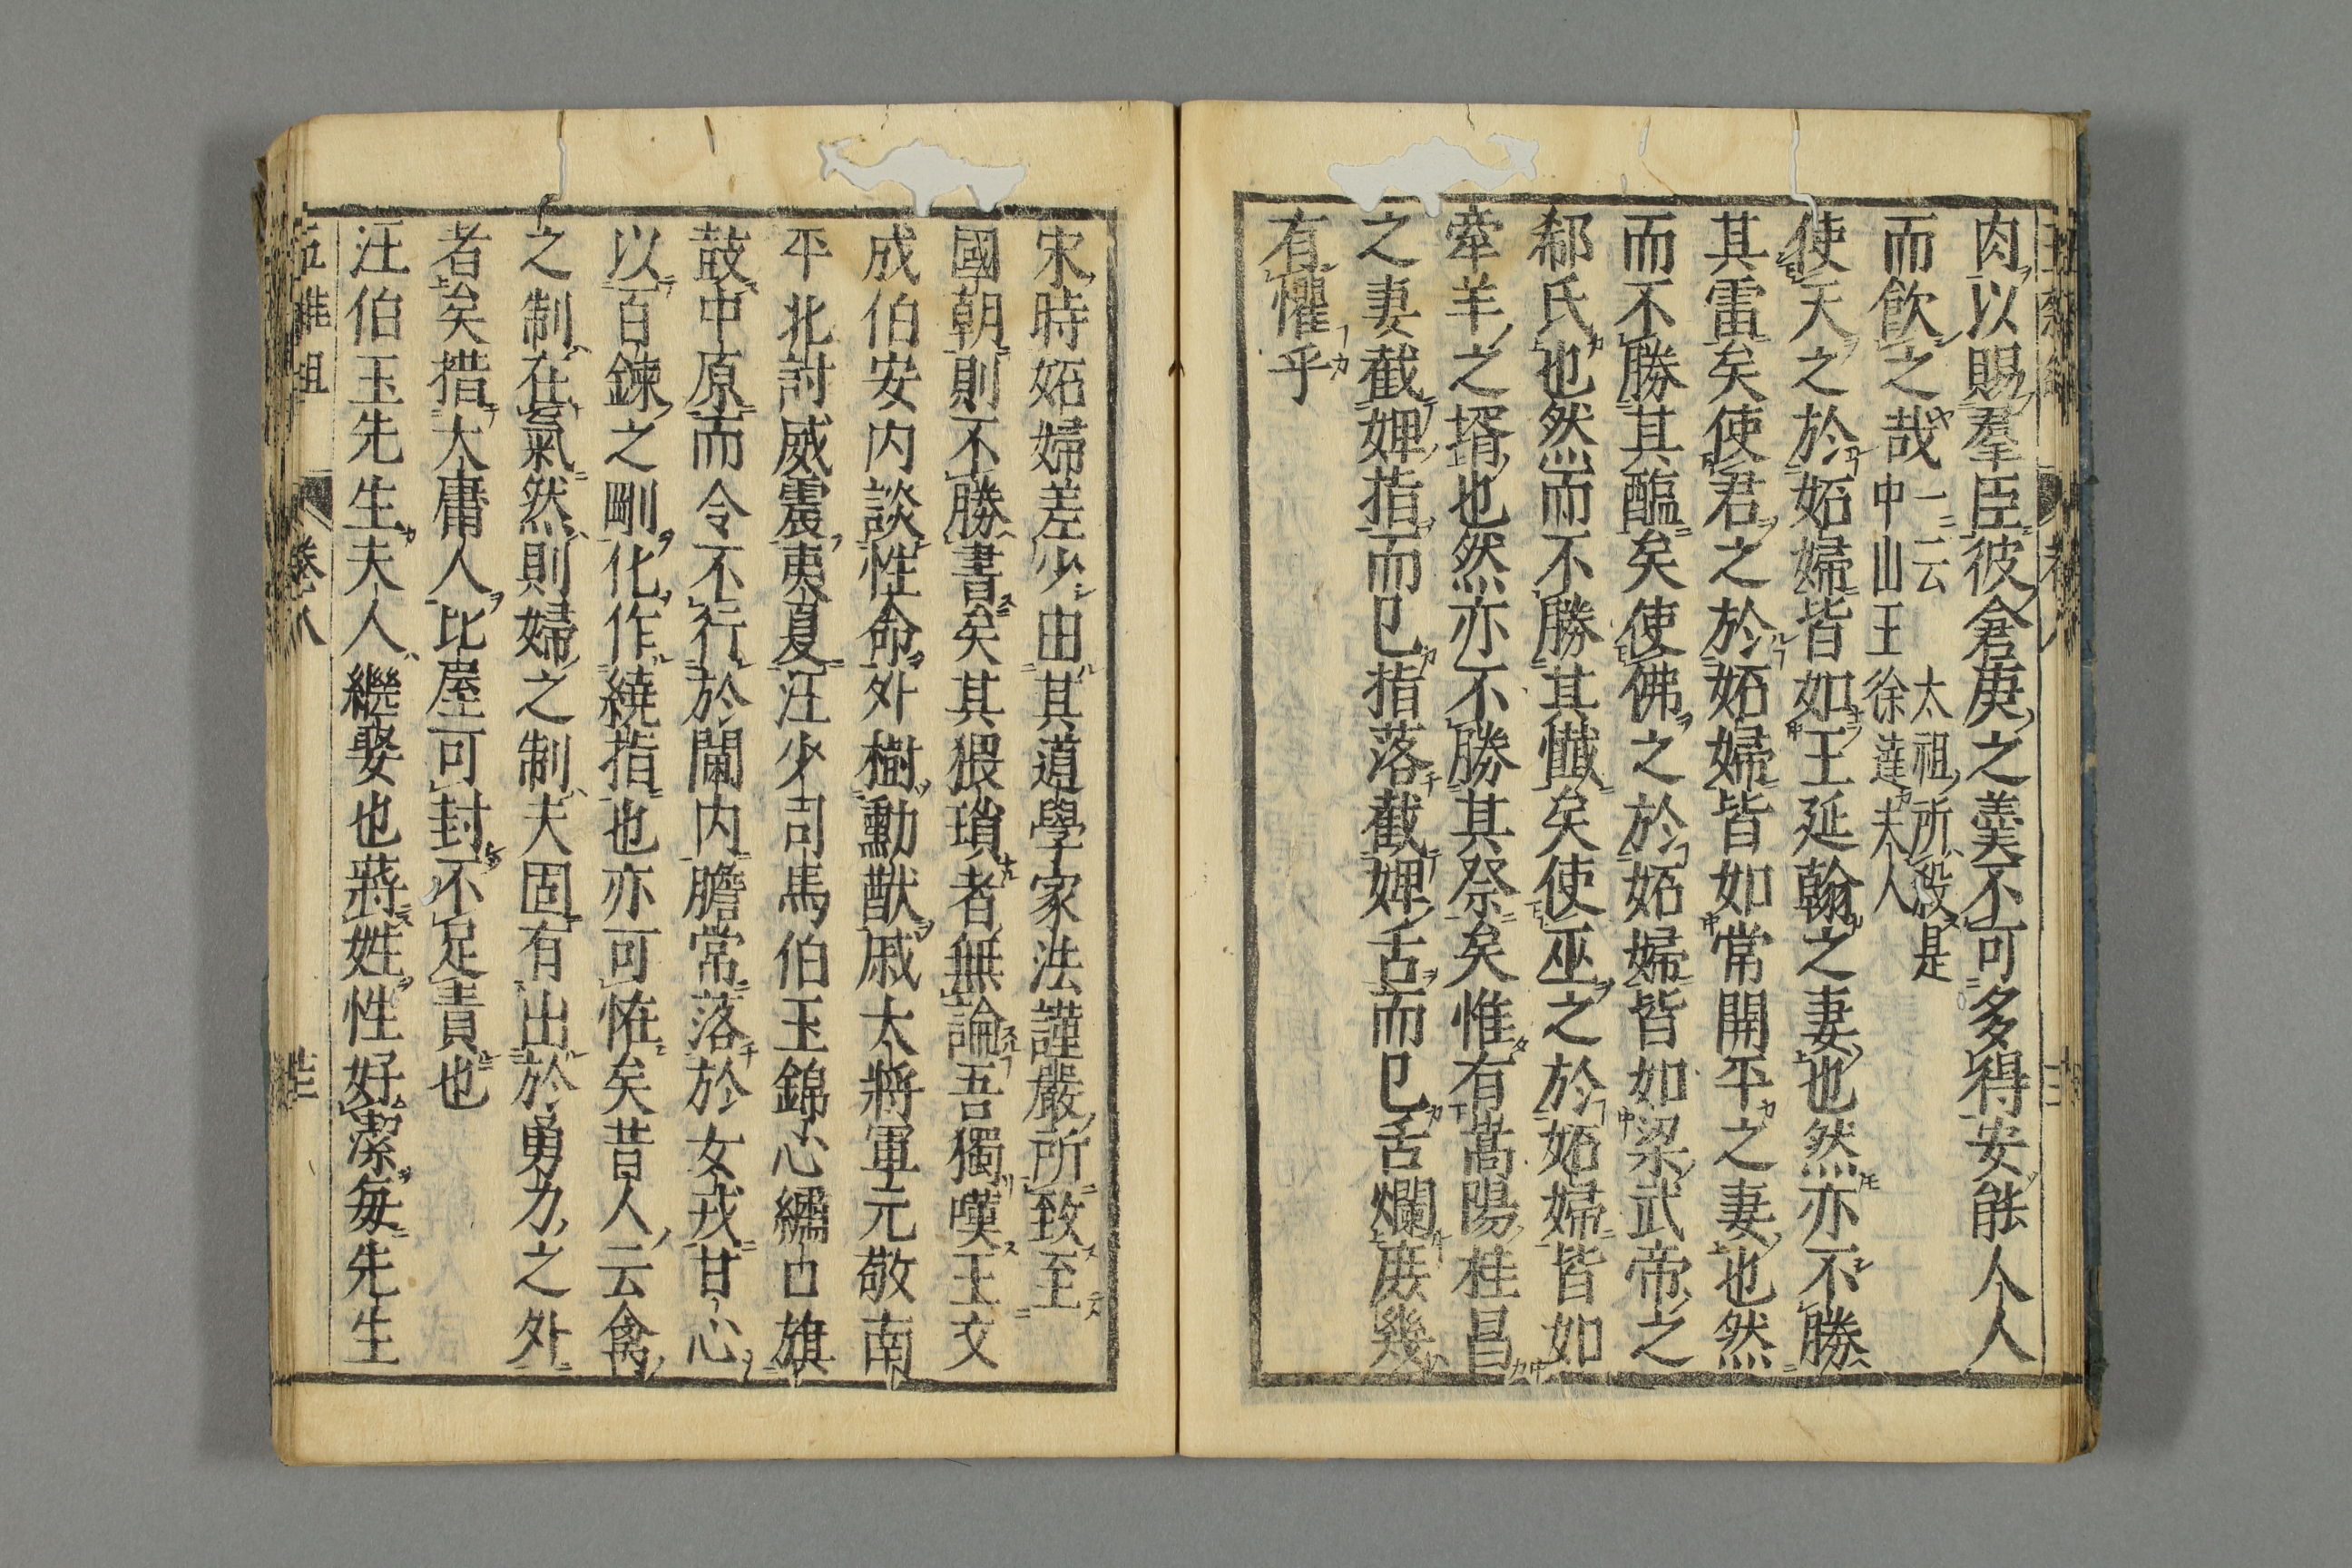 肉以賜羣臣彼倉庚之羹不可多得安能人人
而飮之哉一云太祖所殺是
中山王徐達夫人
使天之於妬婦皆如王延翰之妻也然亦不勝
其雷矣使君之於妬婦皆如常開平之妻也然
而不勝其醢矣使佛之於妬婦皆如梁武帝之
郗氏也然而不勝其懺矣使巫之於妬婦皆如
牽羊之壻也然亦不勝其祭矣惟有高陽桂昌
之妻截婢指而已指落截婢舌而已舌爛庶幾
有懼乎
宋時妬婦差少由其道學家法謹嚴所致至
國朝則不勝書矣其猥瑣者無論吾獨嘆王文
成伯安内談性命外樹勳猷戚大將軍元敬南
平北討威震夷夏汪少司馬伯玉錦心繡口旗
鼓中原而令不行於閫内膽常落於女戎甘心
以百鍊之剛化作繞指也亦可恠矣昔人云禽
之制在氣然則婦之制夫固有出於勇力之外
者矣措大庸人比屋可封不足責也
汪伯玉先生夫人繼娶也蔣姓性好潔每先生
五雜俎 卷八